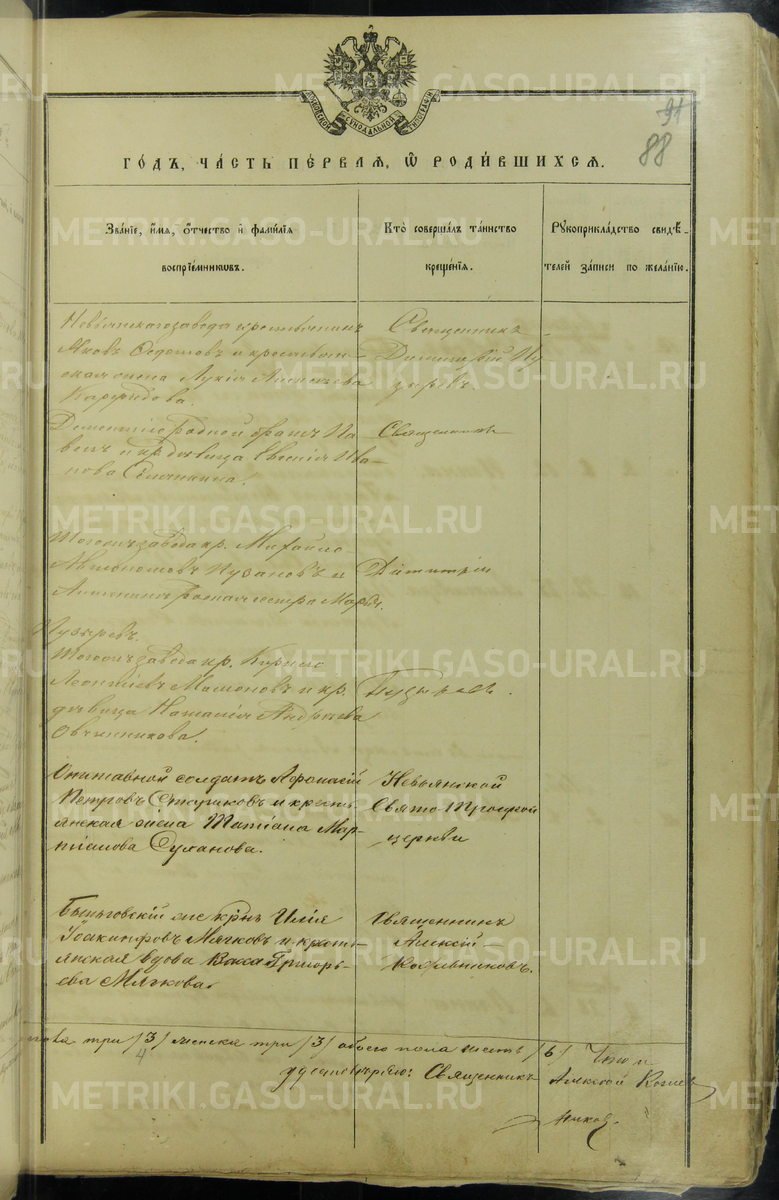 METRIKI.GASO-URAL.RU
МОСКОВСКОЙ СѴНОДАЛЬНОЙ ТИПОГРАФІИ
91
88
ГОДЪ, ЧАСТЬ ПЕРВАЯ, Ѽ РОДИВШИХСЯ.
Званіе, имя, отчество и фамилія воспріемниковъ.
Кто совершалъ таинство крещенія.
Рукоприкладство свидѣтелей записи по желанію.
Невьянскаго завода крестьянинъ
Яковъ Федотовъ и крестьян-
ская жена Лукія Алексѣева
Священникъ
Димитрій Пу
зыревъ
родной братъ Па
велъ и кр. дѣвица Евгенія Ива
нова
Священникъ
Тогожъ завода кр. Михайло
Пузановъ и
родная сестра Марья.
Димитрій
Пузыревъ
Тогожъ завода кр. Кирило
Леонтіевъ Мамоновъ и кр.
дѣвица Наталія Андреева
Овчинникова.
Пузыревъ.
солдатъ Афонасій
Петровъ Стариковъ и кресть
янская жена Татіана Мар-
Суханова.
Невьянской
Свято Троицкой
церкви
Быньговскій кр-нъ Илія
Іоакимовъ Мячковъ и крест-
янская вдова Васса Григорь-
ева Мячкова.
Священникъ
Алексій
Кожевниковъ.
пола три /3/ женска три /3/ обоего пола шесть /6/ Что и
4
удостовѣряю: Священникъ Алексій Кожев
никовъ.